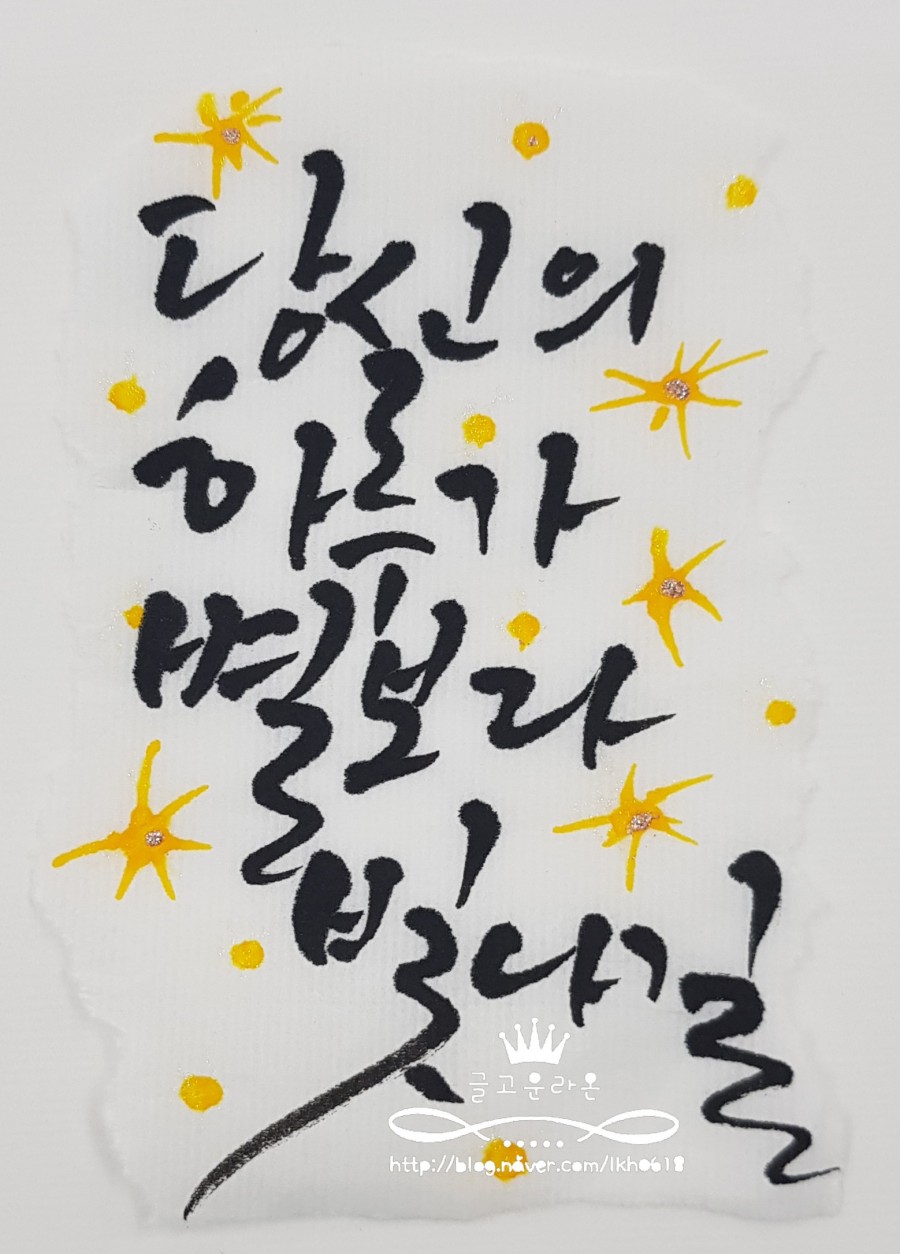 당신의
하루가
별보다
빛나길
글고운라온
http://blog.naver.com/lkh0618